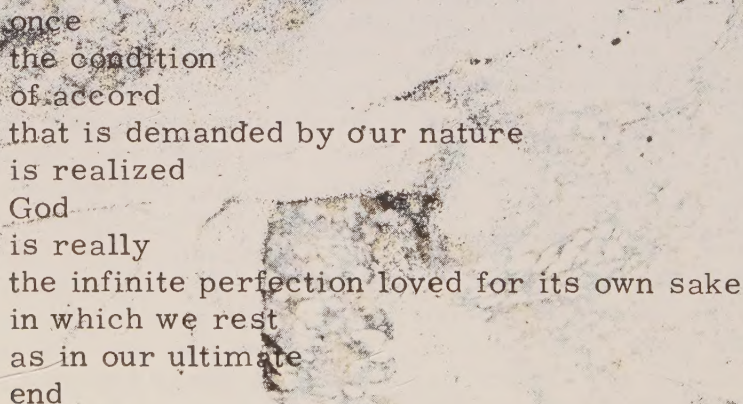 once
the condition
of accord
that is demanded by our nature
is realized
God
is really
the infinite perfection loved for its own sake
in which we rest
as in our ultimate
end